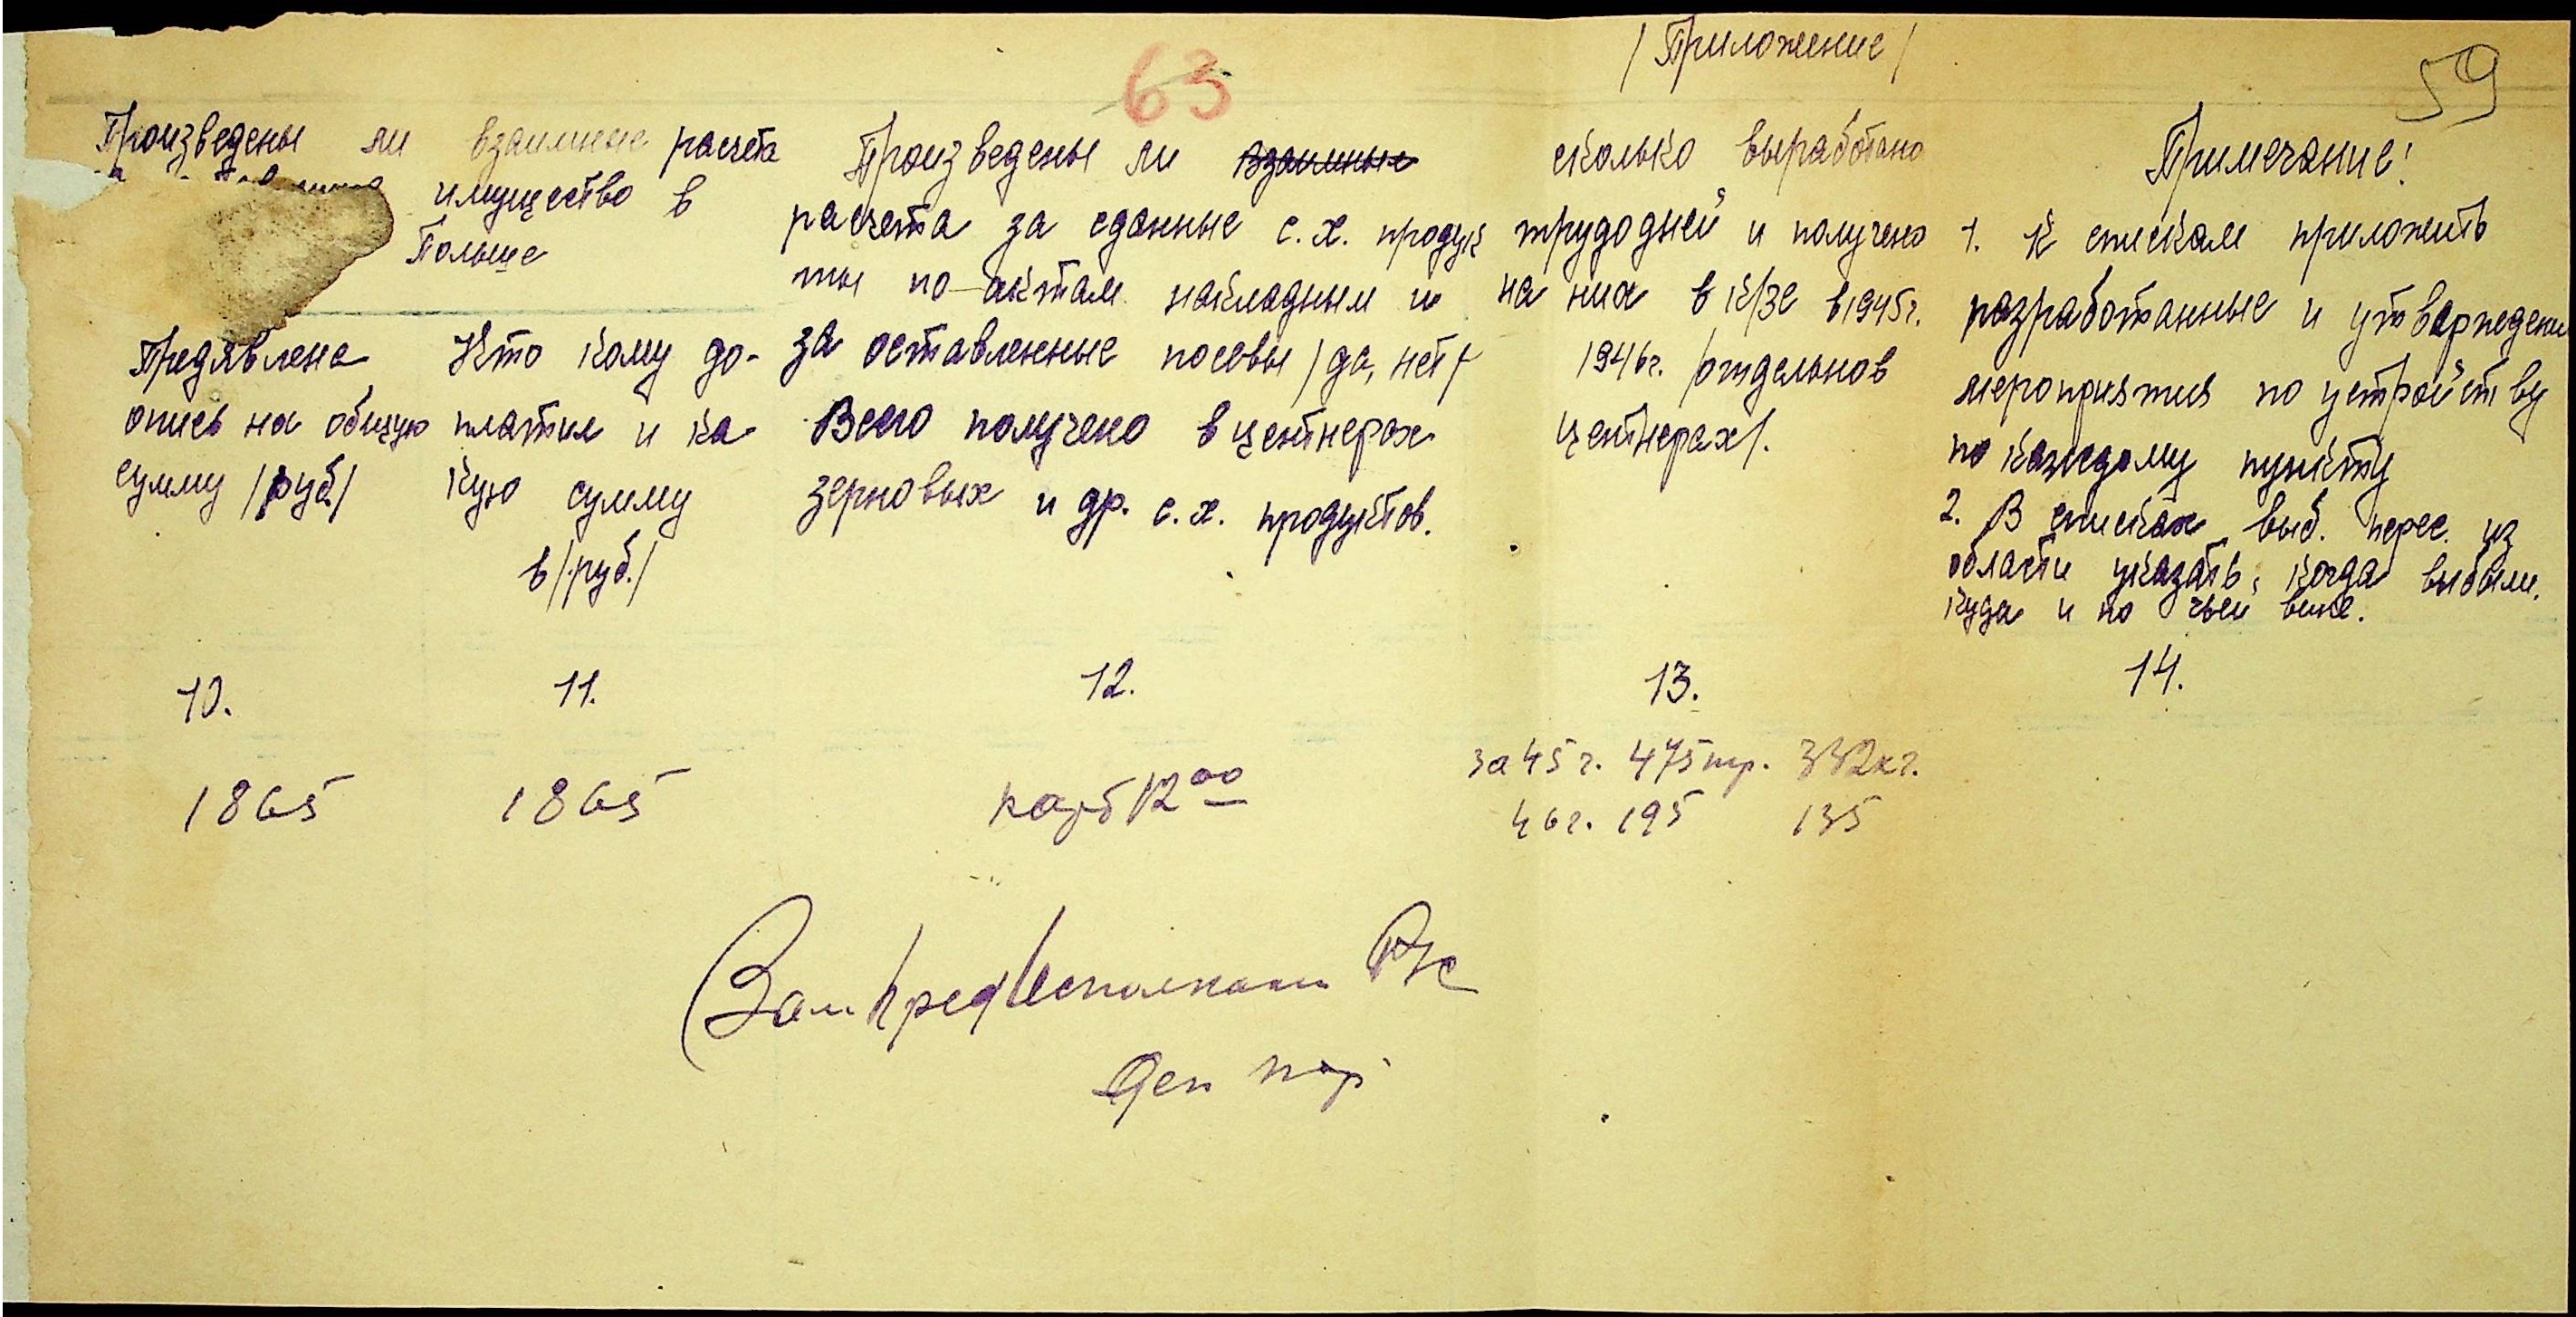 /Приложение/
63
59
Произведены ли взаимные расчета
имущество в
Польше
Предявлена
опись на общую
сумму /руб/
Кто кому до-
платил и ка-
кую сумму
в /руб./
Произведены ли взаимные
расчета за сданные с.х. продук
ты по актам накладным и
за оставленные посевы /да, нет/
Всего получено в центнерах
зерновых и др. с.х. продуктов.
сколько выработано
трудодней и получено
на них в к/зе в 1945г.
1946г. /отдельно в
центнерах/.
Примечание!
1. К спискам приложить
разработанные и утвержденн
мероприятия по устройству
по каждому пункту
2. В списках выб. перес. из
области указать, когда выбыли.
куда и по чьей вине.
10. 11. 12. 13. 14.
1865 1865 12 00 за 45 г. 475 тр. 332 кг.
46 г. 195 135
Зам пред Исполкома